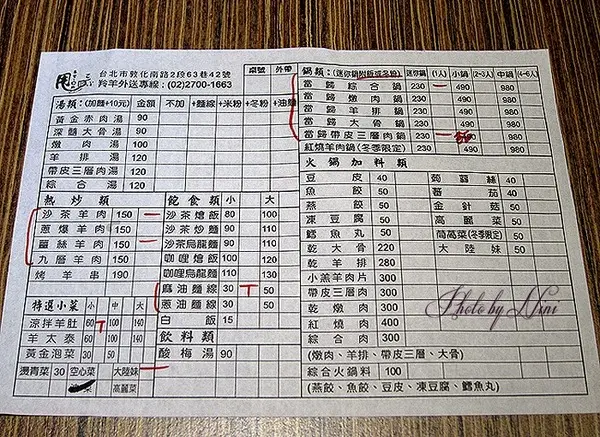 台北市敦化南路2段63巷42號
羚羊外送專線：(02)2700-1663
桌號 外帶
湯類：(加麵+10元) 金額 不加 +麵線 +米粉 +冬粉 +油麵
黃金赤肉湯 90
深髓大骨湯 90
燉肉湯 120
羊排湯 120
帶皮三層肉湯 120
綜合湯 120
熱炒類
沙茶羊肉 150
蔥爆羊肉 150
薑絲羊肉 150
九層羊肉 150
烤羊串 190
特選小菜 小 中 大
涼拌羊肚 60 100 140
羊太泰 60 100 140
黃金泡菜 30 50
燙青菜 30 空心菜 大陸妹
高麗菜
飲食類 小 大
沙茶燴飯 80 100
沙茶炒麵 90 110
沙茶烏龍麵 90 110
咖哩燴飯 100 120
咖哩烏龍麵 110 130
麻油麵線 30 50
蔥油麵線 30 50
白飯 15
飲料類
酸梅湯 90
鍋類：(迷你鍋附飯或冬粉) 迷你鍋 (1人) 小鍋 (2~3人) 中鍋 (4~6人)
當歸綜合鍋 230 490 980
當歸燉肉鍋 230 490 980
當歸羊排鍋 230 490 980
當歸大骨鍋 230 490 980
當歸帶皮三層肉鍋 230 490 980
紅燒羊肉鍋(冬季限定) 230 490 980
火鍋加料類
豆皮 40 蒟蒻絲 40
魚餃 50 蕃茄 40
燕餃 50 金針菇 50
凍豆腐 50 高麗菜 50
鱈魚丸 50 茼萵菜(冬季限定) 50
乾大骨 220 大陸妹 50
乾羊排 280
小羔羊肉片 300
帶皮三層肉 300
乾燉肉 300
紅燒肉 400
綜合肉 300
(燉肉、羊排、帶皮三層、大骨)
綜合火鍋料 100
(燕餃、魚餃、豆皮、凍豆腐、鱈魚丸)
Photo by Nini